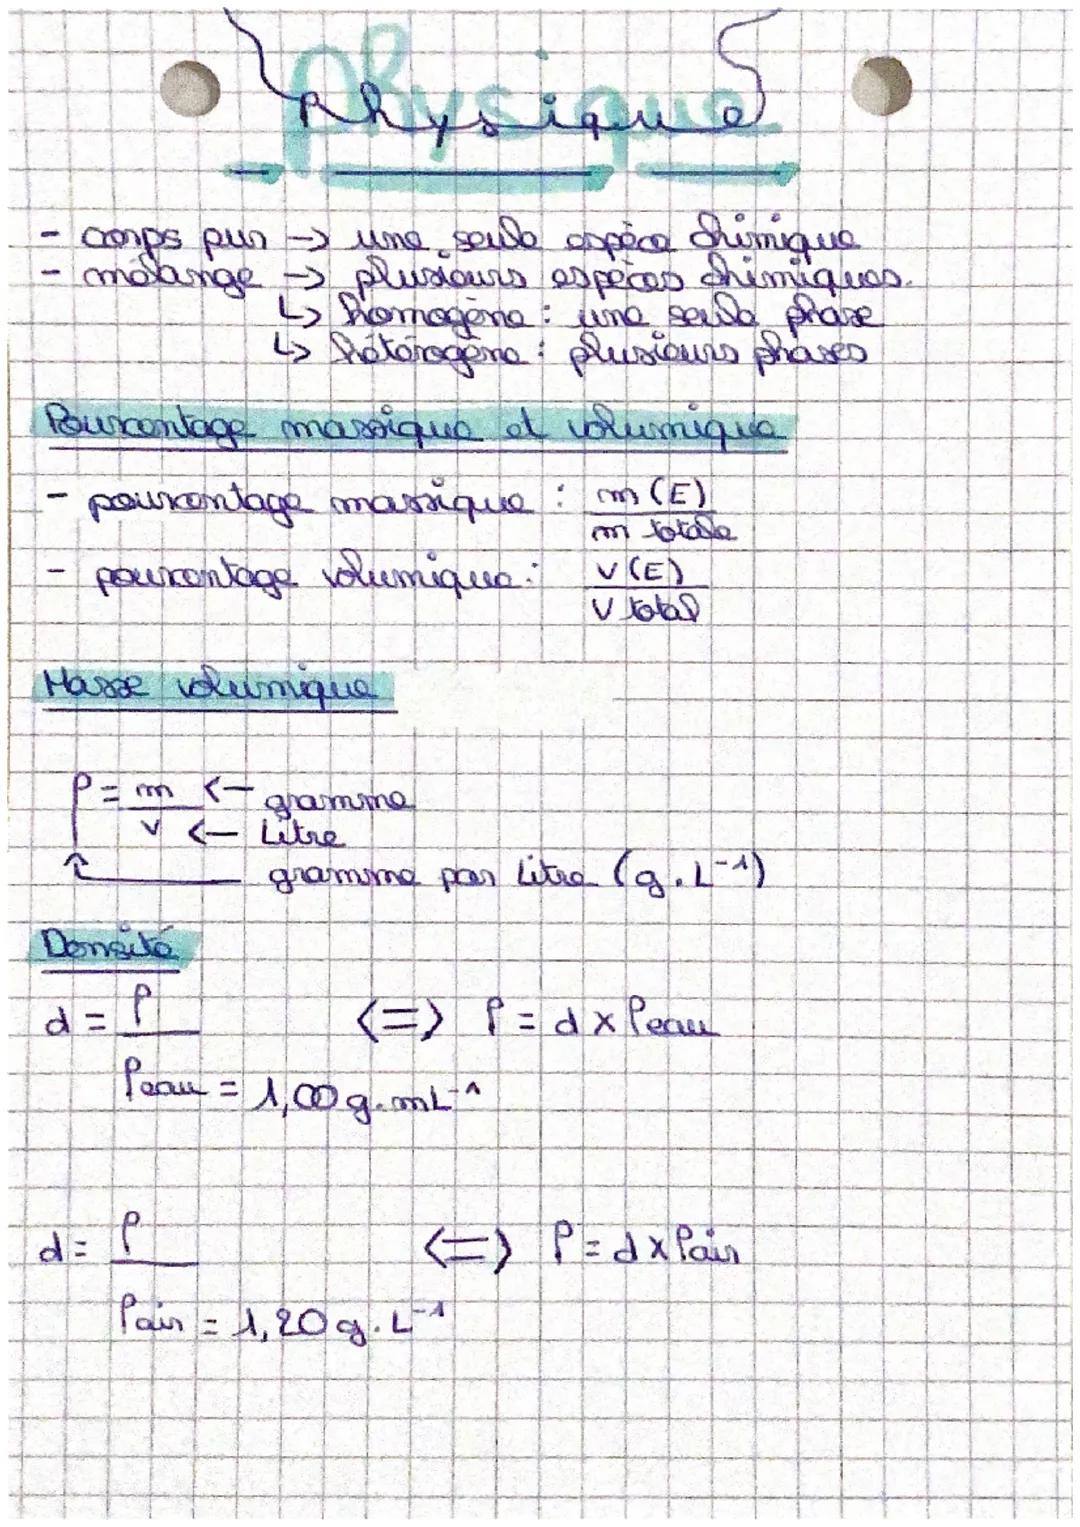 Physique
- corps pur -> une seule espèce chimique
- mélange -> plusieurs espèces chimiques.
↳ homogène : une seule phase
↳ hétérogène : plusieurs phases
Pourcentage massique et volumique
- pourcentage massique : m (E)
m totale
- pourcentage volumique : V (E)
V total
Masse volumique
ρ = m <- gramme
V <- Litre
gramme par Litre (g.L⁻¹)
Densité
d = ρ <=> ρ = d x ρeau
ρeau = 1,00 g.mL⁻¹
d = ρ <=> ρ = d x ρair
ρair = 1,20 g.L⁻¹